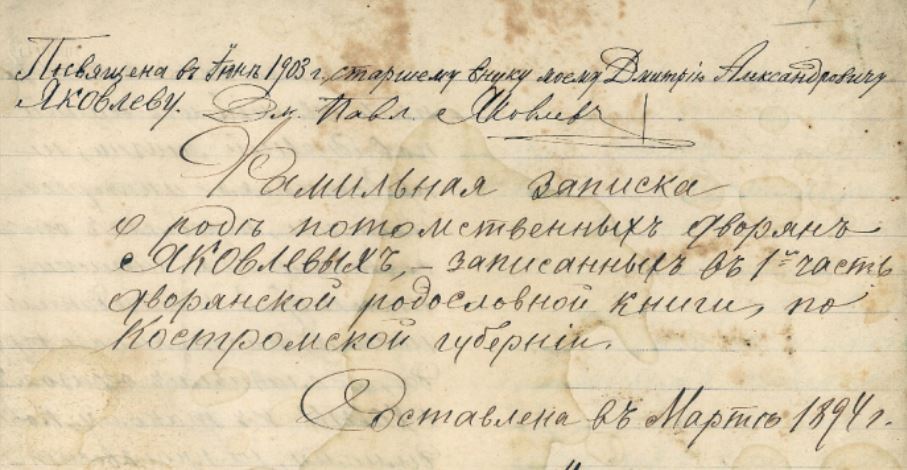 Посвящена въ Іюнѣ 1903 г. старшему внуку моему Дмитрію Александровичу
Яковлеву. Дм. Павл. Яковлевъ
Фамильная записка
о родѣ потомственныхъ дворянъ
Яковлевыхъ, – записанныхъ въ 1ую часть
дворянской родословной книги, по
Костромской губерніи.
Составлена въ Мартѣ 1894 г.